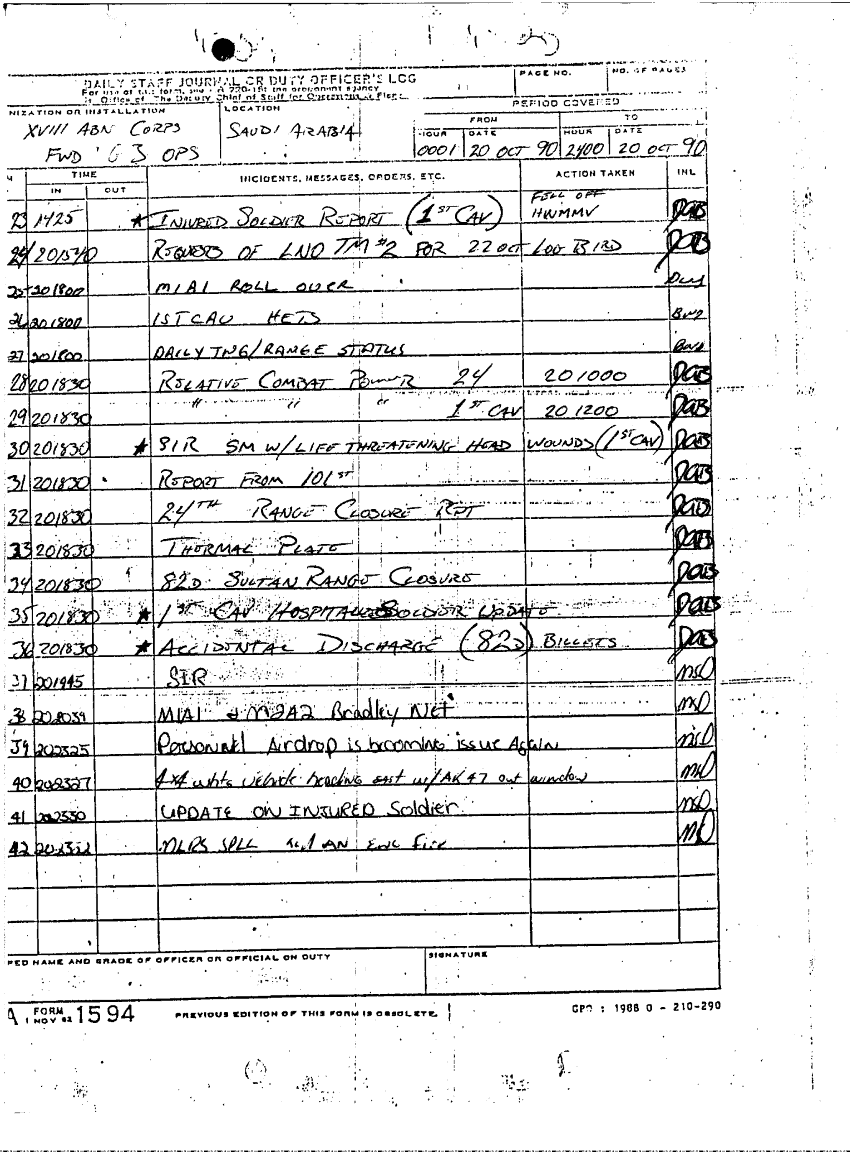 DAILY STAFF JOURNAL OR DUTY OFFICER'S LOG
PAGE NO.
NO. OF PAGES
For use of this form, see 220-15; the proponent agency
is Office of The Deputy Chief of Staff for Operations & Plans
NIZATION OR INSTALLATION
LOCATION
PERIOD COVERED
XVIII ABN CORPS
FWD G3 OPS
SAUDI ARABIA
FROM
TO
HOUR DATE HOUR DATE
0001 20 OCT 90 2400 20 OCT 90
TIME
IN OUT
INCIDENTS, MESSAGES, ORDERS, ETC.
ACTION TAKEN
INL
23 1425 * INJURED SOLDIER REPORT (1ST CAV) FELL OFF HWMMV DGB
24 201540 REQUESTS OF LNO TM #2 FOR 22 OCT LOG BIRD DGB
25 201800 M1A1 ROLL OVER
26 201800 1ST CAV HETS
27 201800 DAILY TNG/RANGE STATUS
28 201830 RELATIVE COMBAT POWER 24 201000 DGB
29 201830 " " " 1ST CAV 201200 DGB
30 201830 * SIR SM W/LIFE THREATENING HEAD WOUNDS (1ST CAV) DGB
31 201830 REPORT FROM 101ST DGB
32 201830 24TH RANGE CLOSURE RPT DGB
33 201830 THERMAL PLATE DGB
34 201830 82D SULTAN RANGE CLOSURE DGB
35 201830 * 1ST CAV SOLDIER UPDATE DGB
36 201830 * ACCIDENTAL DISCHARGE (82D) BILLETS DGB
37 201945 SIR MSD
38 M1A1 & M2A2 Bradley Net MSD
39 202325 Personnel Airdrop is becoming issue Again MSD
40 202327 4x4 white vehicle heading east w/AK47 out window MSD
41 UPDATE ON INJURED Soldier MSD
42 MLRS SPLL MSD
PED NAME AND GRADE OF OFFICER OR OFFICIAL ON DUTY
SIGNATURE
A FORM 1 NOV 62 1594
PREVIOUS EDITION OF THIS FORM IS OBSOLETE.
GPO : 1988 O - 210-290